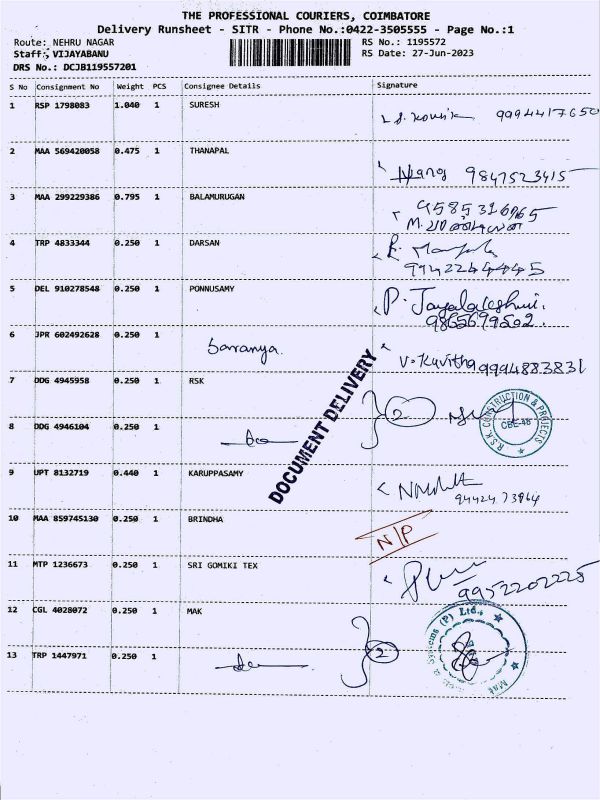 THE PROFESSIONAL COURIERS, COIMBATORE
Delivery Runsheet - SITR - Phone No.:0422-3505555 - Page No.:1
Route: NEHRU NAGAR RS No.: 1195572
Staff: VIJAYABANU RS Date: 27-Jun-2023
DRS No.: DCJB119557201
S No Consignment No Weight PCS Consignee Details Signature
1 RSP 1798083 1.040 1 SURESH 9994417650
2 MAA 569420058 0.475 1 THANAPAL 9847523415
3 MAA 299229386 0.795 1 BALAMURUGAN
4 TRP 4833344 0.250 1 DARSAN
9942244445
5 DEL 910278548 0.250 1 PONNUSAMY P. Jayalakshmi.
9865699502.
6 JPR 602492628 0.250 1 Saranya. V. Kavitha 9994883831
7 DDG 4945958 0.250 1 RSK
2
R.S.K. CONSTRUCTION & PROJECTS
CBE-46
8 DDG 4946104 0.250 1
DOCUMENT DELIVERY
9 UPT 8132719 0.440 1 KARUPPASAMY
94424 73964
10 MAA 859745130 0.250 1 BRINDHA N/P
11 MTP 1236673 0.250 1 SRI GOMIKI TEX 9952202225
12 CGL 4028072 0.250 1 MAK
2
Systems (P) Ltd.,
13 TRP 1447971 0.250 1